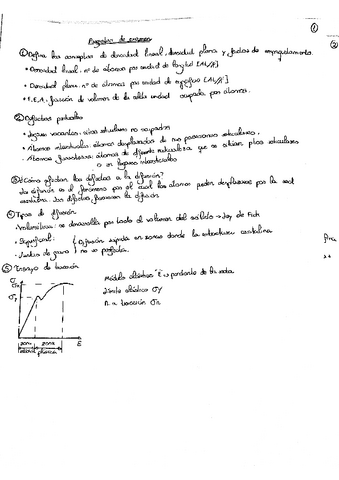 Preguntas de examen
①
②
① Define los conceptos de densidad lineal, densidad plana y factor de empaquetamiento.
• Densidad lineal: nº de átomos por unidad de longitud [At/Å]
• Densidad plana: nº de átomos por unidad de superficie [At/Å²]
• F.E.A: fracción de volumen de la celda unidad ocupada por átomos.
② Defectos puntuales
• Lugares vacantes: sitios reticulares no ocupados
• Átomos intersticiales: átomos desplazados de sus posiciones reticulares.
• Átomos átomos de diferente naturaleza que se sitúan sitios reticulares
o en lugares intersticiales
③ ¿Cómo afectan los defectos a la difusión?
La difusión es el fenómeno por el cual los átomos pueden desplazarse por la red
cristalina. Los defectos favorecen la difusión
④ Tipos de difusión
• Volumétrica: se desarrolla por todo el volumen del sólido → Ley de Fick
• Superficial: Difusión rápida en zonas donde la estructura cristalina
• Juntas de grano no es perfecta.
⑤ Ensayo de tracción
σ
Módulo elástico "E" → pendiente de la recta
Límite elástico σy
R a tracción σR
zona zona
elástica plástica
E